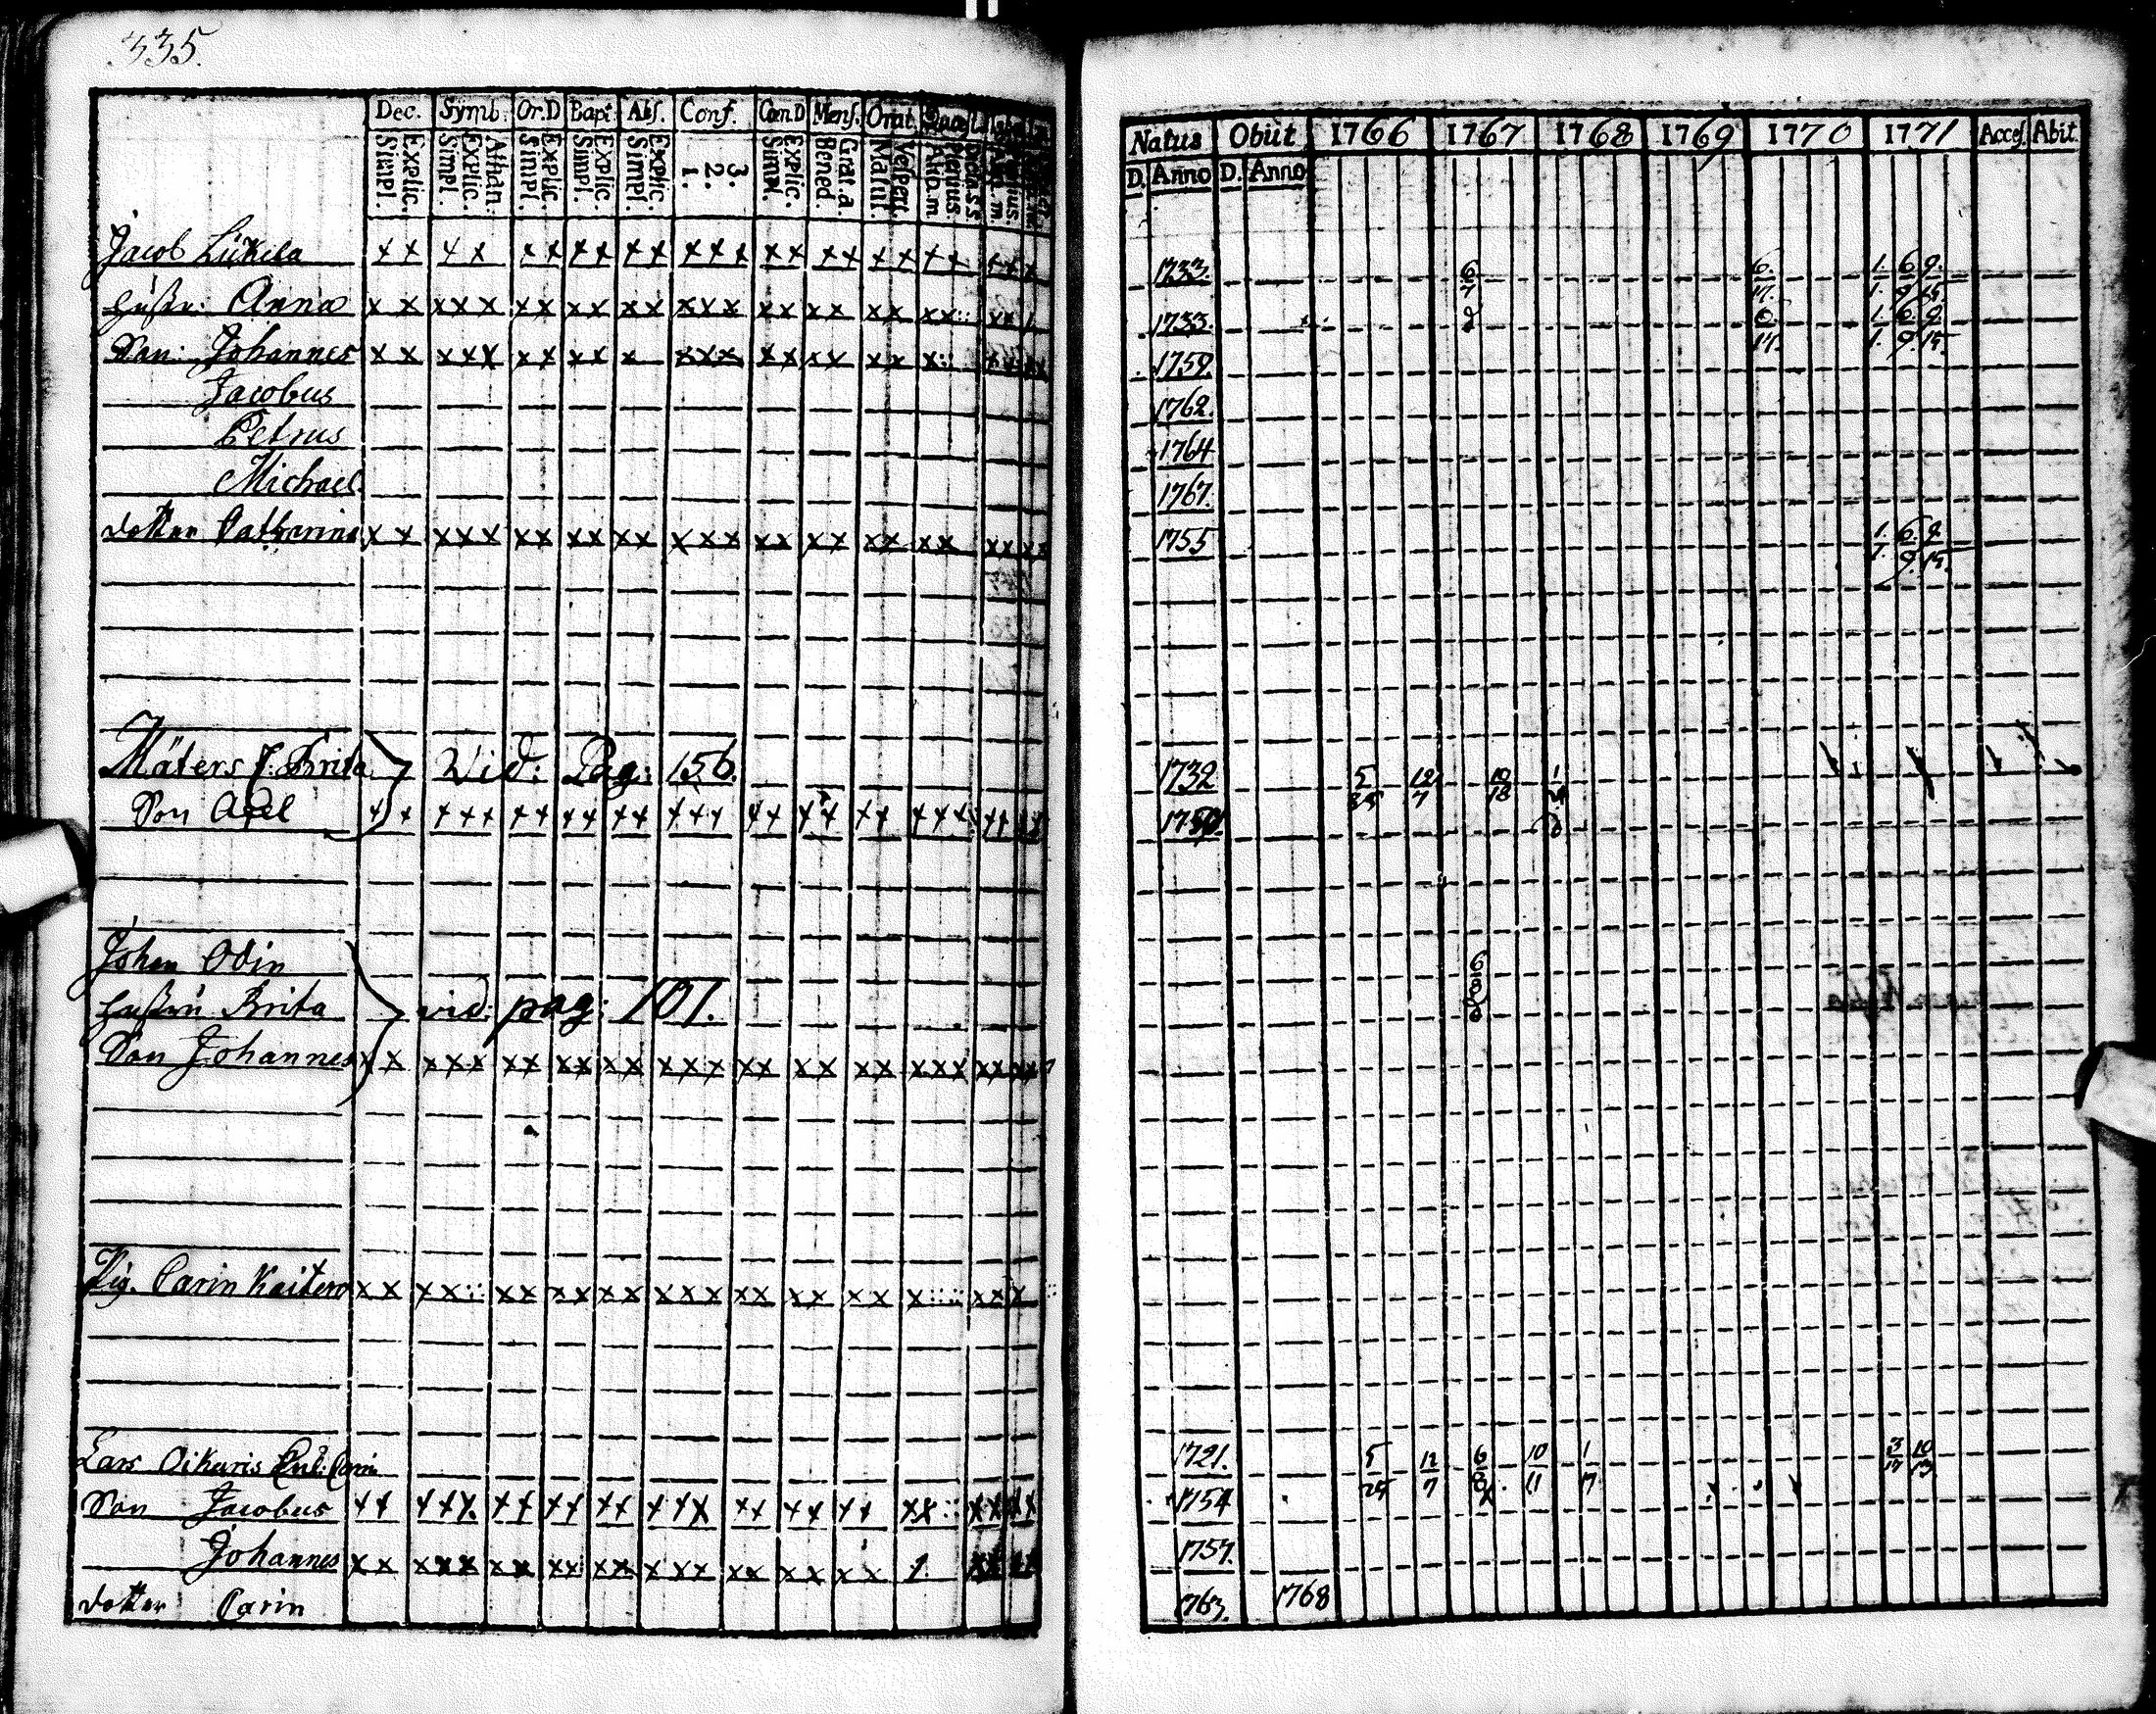 335.
Dec. Symb. Or.D Bapt. Abs. Conf. Cœn.D Mens. Orat.
Explic. Simpl. Athan. Explic. Simpl. Explic. Simpl. Explic. Simpl. Explic. Simpl. 3. 2. 1. Explic. Simpl. Grat. a. Bened. Vespert. Matut. Plenius. Ad D. m.
Jacob Likila x x x x x x x x x x x x x x x x x x x x x x
hustr: Anna x x x x x x x x x x x x x x x x x x x x x x
Son: Johannes x x x x x x x x x x x x x x x x x x x x
Jacobus
Petrus
Michael
dotter Catharina x x x x x x x x x x x x x x x x x x x x x x
Mäters J. Brita Vid: Pag: 156.
Son Axel x x x x x x x x x x x x x x x x x x x x x x x
Johan Odin
hustru Brita vid: pag: 107.
Son Johannes x x x x x x x x x x x x x x x x x x x x x x x
Pig. Carin Kaitero x x x x x x x x x x x x x x x x x x x x
Lars Oikaris Enk: Carin
Son Jacobus x x x x x x x x x x x x x x x x x x x x x x
Johannes x x x x x x x x x x x x x x x x x x x x 1
dotter Carin
Natus Obiit 1766 1767 1768 1769 1770 1771 Acces. Abit.
D. Anno D. Anno
1733. 6/7 6./17. 1./1. 6/9 9./15
1733. 6/17. 1./1. 6/9. 9./15.
1759.
1762.
1764
1767.
1755 1./1. 6/9. 9./15.
1732 5/25 12/7 10/18 1/
1721. 5/25 12/7 6/8 10/11 1/17 3/17 10/13
1754
1757.
1763. 1768